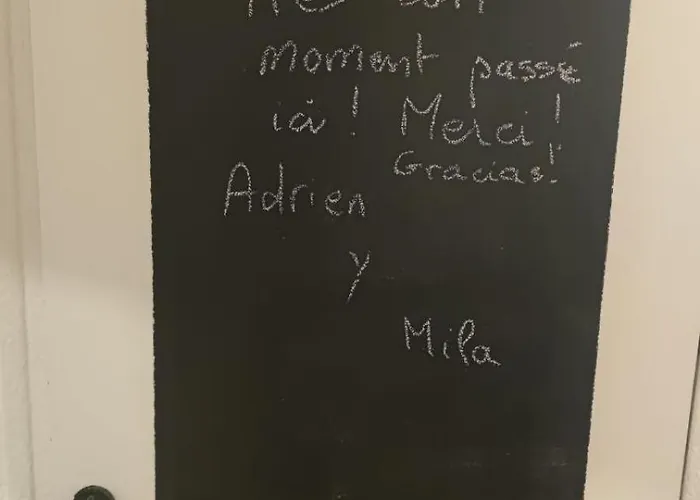 moment passé
ici ! Merci !
Gracias!
Adrien
y
Mila